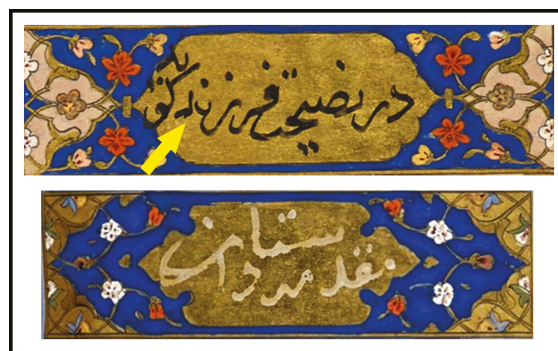 در نصیحت فرزند گوید
مقدمه داستان